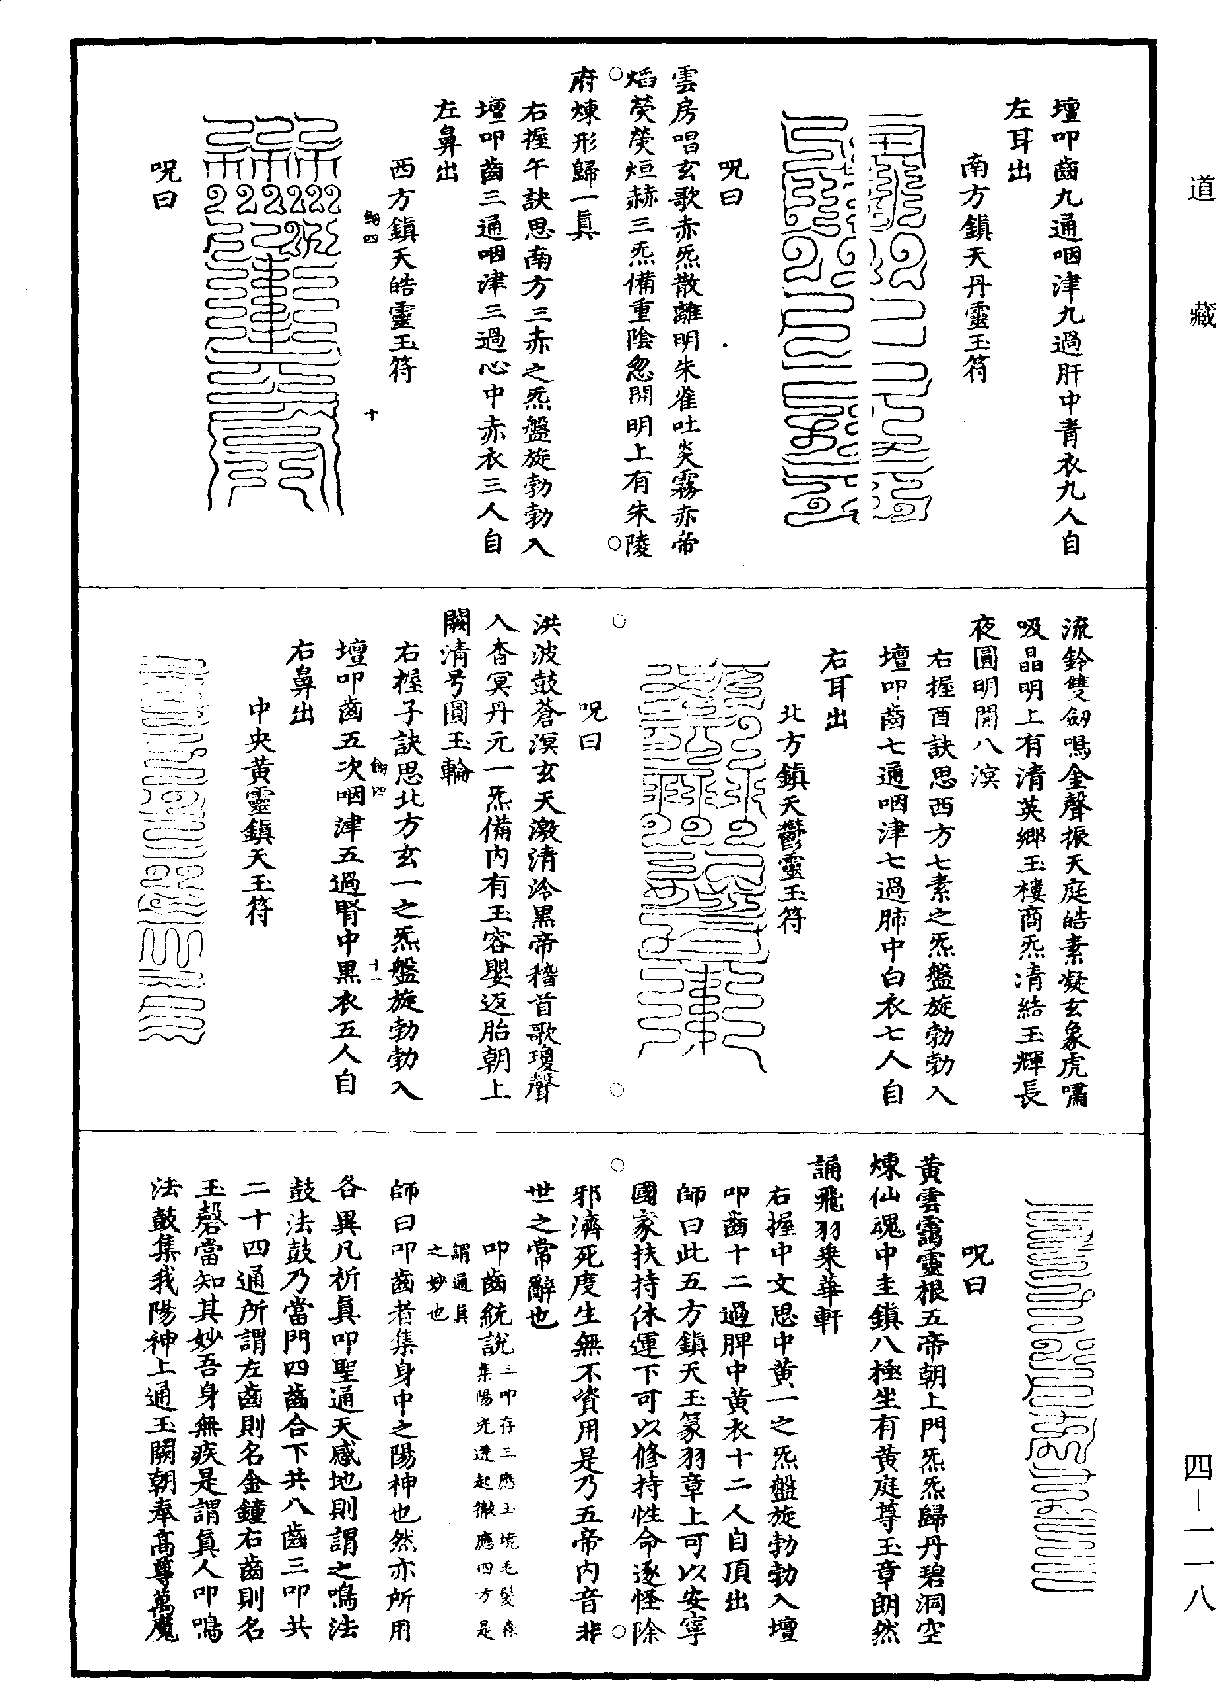 道藏
壇叩齒九通咽津九過肝中青衣九人自
左耳出
南方鎮天丹靈玉符
呪曰
雲房唱玄歌赤炁散離明朱雀吐炎霧赤帝
熖熒熒烜赫三炁備重陰忽開明上有朱陵
府煉形歸一眞
右握午訣思南方三赤之炁盤旋勃勃入
壇叩齒三通咽津三過心中赤衣三人自
左鼻出
西方鎮天皓靈玉符
呪曰
流鈴雙劒鳴金聲振天庭皓素凝玄象虎嘯
吸晶明上有清英鄉玉樓商炁清結玉輝長
夜圓明開八溟
右握酉訣思西方七素之炁盤旋勃勃入
壇叩齒七通咽津七過肺中白衣七人自
右耳出
北方鎮天鬱靈玉符
呪曰
洪波鼓蒼溟玄天激清泠黑帝稽首歌瓊聲
入杳冥丹元一炁備内有玉容嬰返胎朝上
闕清号圓玉輪
右握子訣思北方玄一之炁盤旋勃勃入
壇叩齒五次咽津五過腎中黑衣五人自
右鼻出
中央黄靈鎮天玉符
呪曰
黄雲靄靈根五帝朝上門炁炁歸丹碧洞空
煉仙魂中圭鎮八極坐有黄庭尊玉章朗然
誦飛羽乗華軒
右握中文思中黄一之炁盤旋勃勃入壇
叩齒十二過脾中黄衣十二人自頂出
師曰此五方鎮天玉篆羽章上可以安寧
國家扶持休運下可以修持性命逐怪除
邪濟死度生無不資用是乃五帝内音非
世之常辭也
叩齒統說三叩存三應玉境毛髮森
集陽光遘起徹應四方是
謂通真
之妙也
師曰叩齒者集身中之陽神也然亦所用
各異凡祈眞叩聖通天感地則謂之鳴法
鼓法鼓乃當門四齒合下共八齒三叩共
二十四通所謂左齒則名金鐘右齒則名
玉磬當知其妙吾身無疾是謂眞人叩鳴
法鼓集我陽神上通玉闕朝奉高尊萬魔
四－一一八